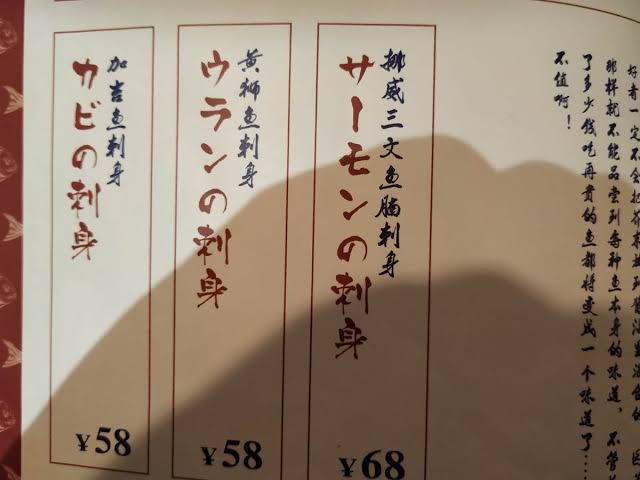 好者一定不会把
那样就不能品尝到各种鱼本身的味道，不管
了多少钱吃再贵的鱼都将变成一个味道了…
不值啊！
挪威三文鱼腩刺身
サーモンの刺身
¥68
黄狮鱼刺身
ウランの刺身
¥58
加吉鱼刺身
カビの刺身
¥58